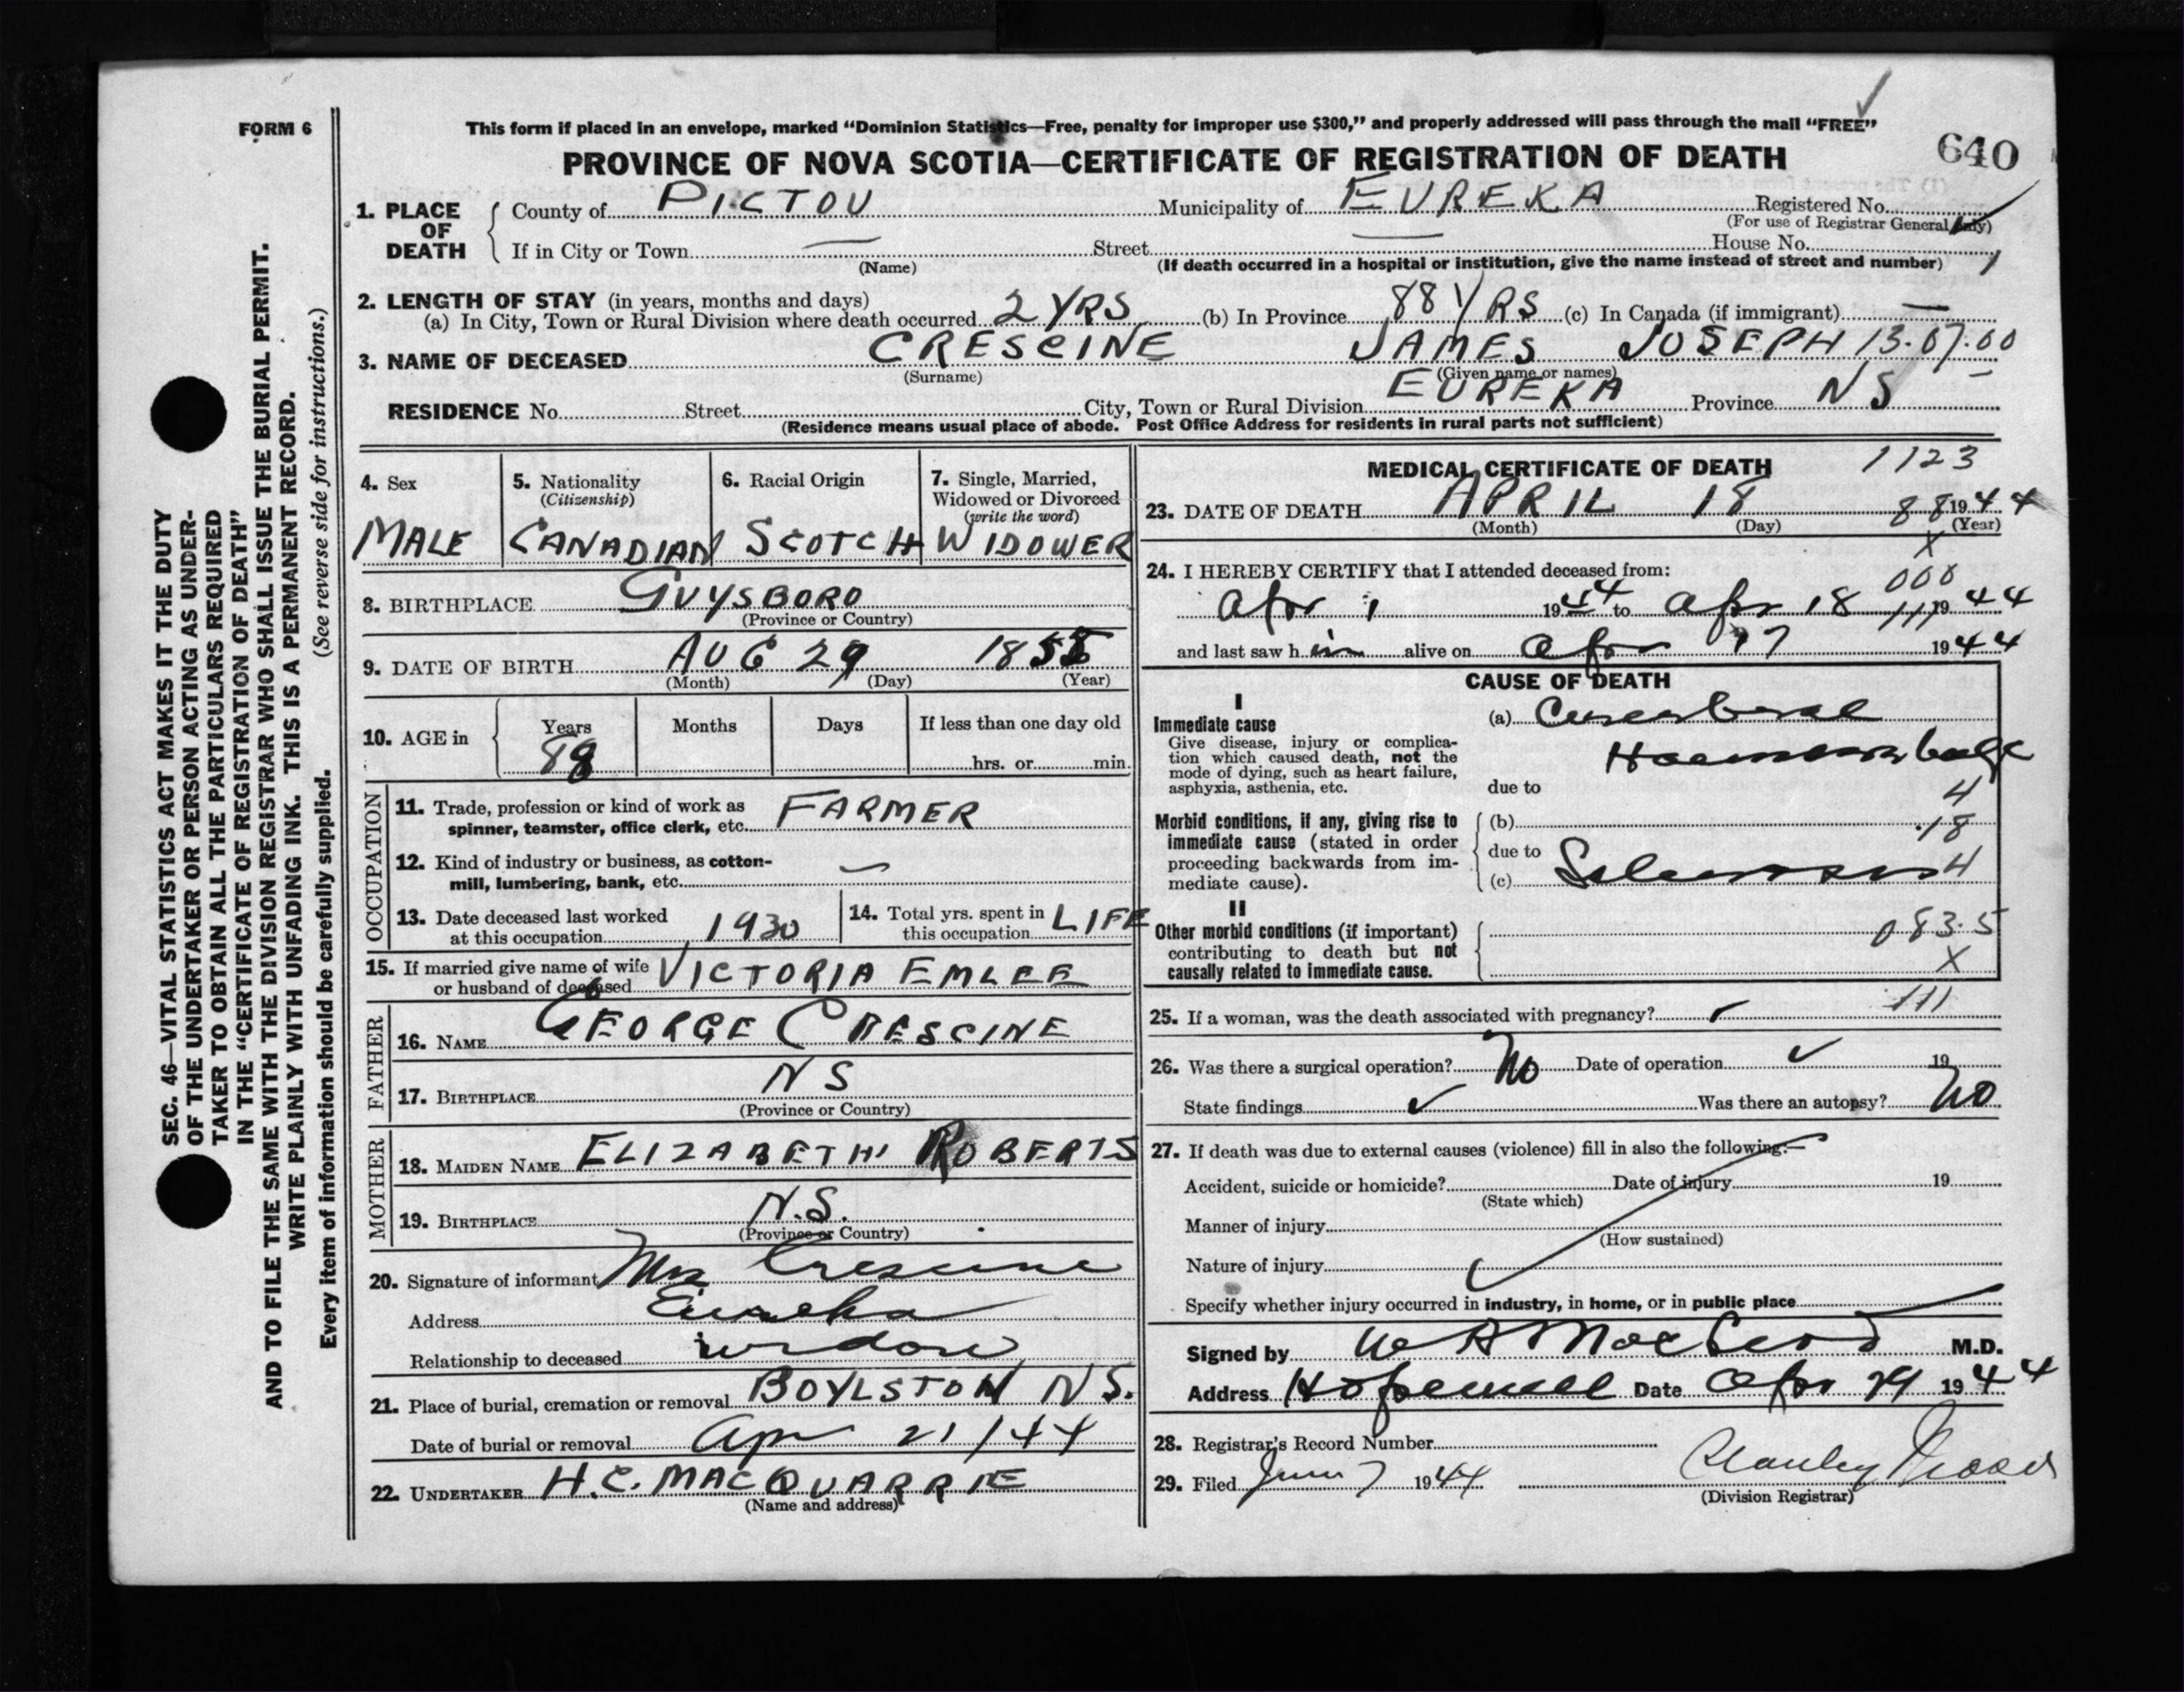 FORM 6
This form if placed in an envelope, marked “Dominion Statistics—Free, penalty for improper use $300,” and properly addressed will pass through the mail “FREE”
PROVINCE OF NOVA SCOTIA—CERTIFICATE OF REGISTRATION OF DEATH
640
1. PLACE OF DEATH
County of PICTOU Municipality of EUREKA Registered No.
(For use of Registrar General only)
If in City or Town — Street — House No.
(Name) (If death occurred in a hospital or institution, give the name instead of street and number)
2. LENGTH OF STAY (in years, months and days)
(a) In City, Town or Rural Division where death occurred 2 YRS (b) In Province 88 YRS (c) In Canada (if immigrant) —
3. NAME OF DECEASED CRESCINE JAMES JOSEPH 13.07.00
(Surname) (Given name or names)
RESIDENCE No. Street City, Town or Rural Division EUREKA Province NS
(Residence means usual place of abode. Post Office Address for residents in rural parts not sufficient)
4. Sex
MALE
5. Nationality
(Citizenship)
CANADIAN
6. Racial Origin
SCOTCH
7. Single, Married,
Widowed or Divorced
(write the word)
WIDOWER
8. BIRTHPLACE GUYSBORO
(Province or Country)
9. DATE OF BIRTH AUG 29 1855
(Month) (Day) (Year)
10. AGE in
Years Months Days If less than one day old
88 hrs. or min.
OCCUPATION
11. Trade, profession or kind of work as
spinner, teamster, office clerk, etc. FARMER
12. Kind of industry or business, as cotton-
mill, lumbering, bank, etc. —
13. Date deceased last worked
at this occupation 1930
14. Total yrs. spent in
this occupation LIFE
15. If married give name of wife
or husband of deceased VICTORIA EMLEE
FATHER
16. NAME GEORGE CRESCINE
17. BIRTHPLACE NS
(Province or Country)
MOTHER
18. MAIDEN NAME ELIZABETH ROBERTS
19. BIRTHPLACE N.S.
(Province or Country)
20. Signature of informant Mrs Crescine
Address Eureka
Relationship to deceased widow
21. Place of burial, cremation or removal BOYLSTON N.S.
Date of burial or removal Apr 21/44
22. UNDERTAKER H.C. MACQUARRIE
(Name and address)
MEDICAL CERTIFICATE OF DEATH 1123
23. DATE OF DEATH APRIL 18 88 1944
(Month) (Day) (Year)
X
24. I HEREBY CERTIFY that I attended deceased from:
000
Apr 1 1944 to Apr 18 111 1944
and last saw him alive on Apr 17 1944
CAUSE OF DEATH
I
Immediate cause
Give disease, injury or complica-
tion which caused death, not the
mode of dying, such as heart failure,
asphyxia, asthenia, etc.
(a) Cerebral
Haemorrhage
due to
4
Morbid conditions, if any, giving rise to
immediate cause (stated in order
proceeding backwards from im-
mediate cause).
(b) 18
due to
(c) Sclerosis 4
II
Other morbid conditions (if important)
contributing to death but not
causally related to immediate cause.
083.5
X
111
25. If a woman, was the death associated with pregnancy?
26. Was there a surgical operation? No Date of operation ✓ 19
State findings ✓ Was there an autopsy? No
27. If death was due to external causes (violence) fill in also the following:—
Accident, suicide or homicide? Date of injury 19
(State which)
Manner of injury
(How sustained)
Nature of injury
Specify whether injury occurred in industry, in home, or in public place
Signed by W A MacLeod M.D.
Address Hopewell Date Apr 29 1944
28. Registrar's Record Number
29. Filed June 7 1944 Stanley
(Division Registrar)
SEC. 46—VITAL STATISTICS ACT MAKES IT THE DUTY
OF THE UNDERTAKER OR PERSON ACTING AS UNDER-
TAKER TO OBTAIN ALL THE PARTICULARS REQUIRED
IN THE “CERTIFICATE OF REGISTRATION OF DEATH”
AND TO FILE THE SAME WITH THE DIVISION REGISTRAR WHO SHALL ISSUE THE BURIAL PERMIT.
WRITE PLAINLY WITH UNFADING INK. THIS IS A PERMANENT RECORD.
(See reverse side for instructions.)
Every item of information should be carefully supplied.